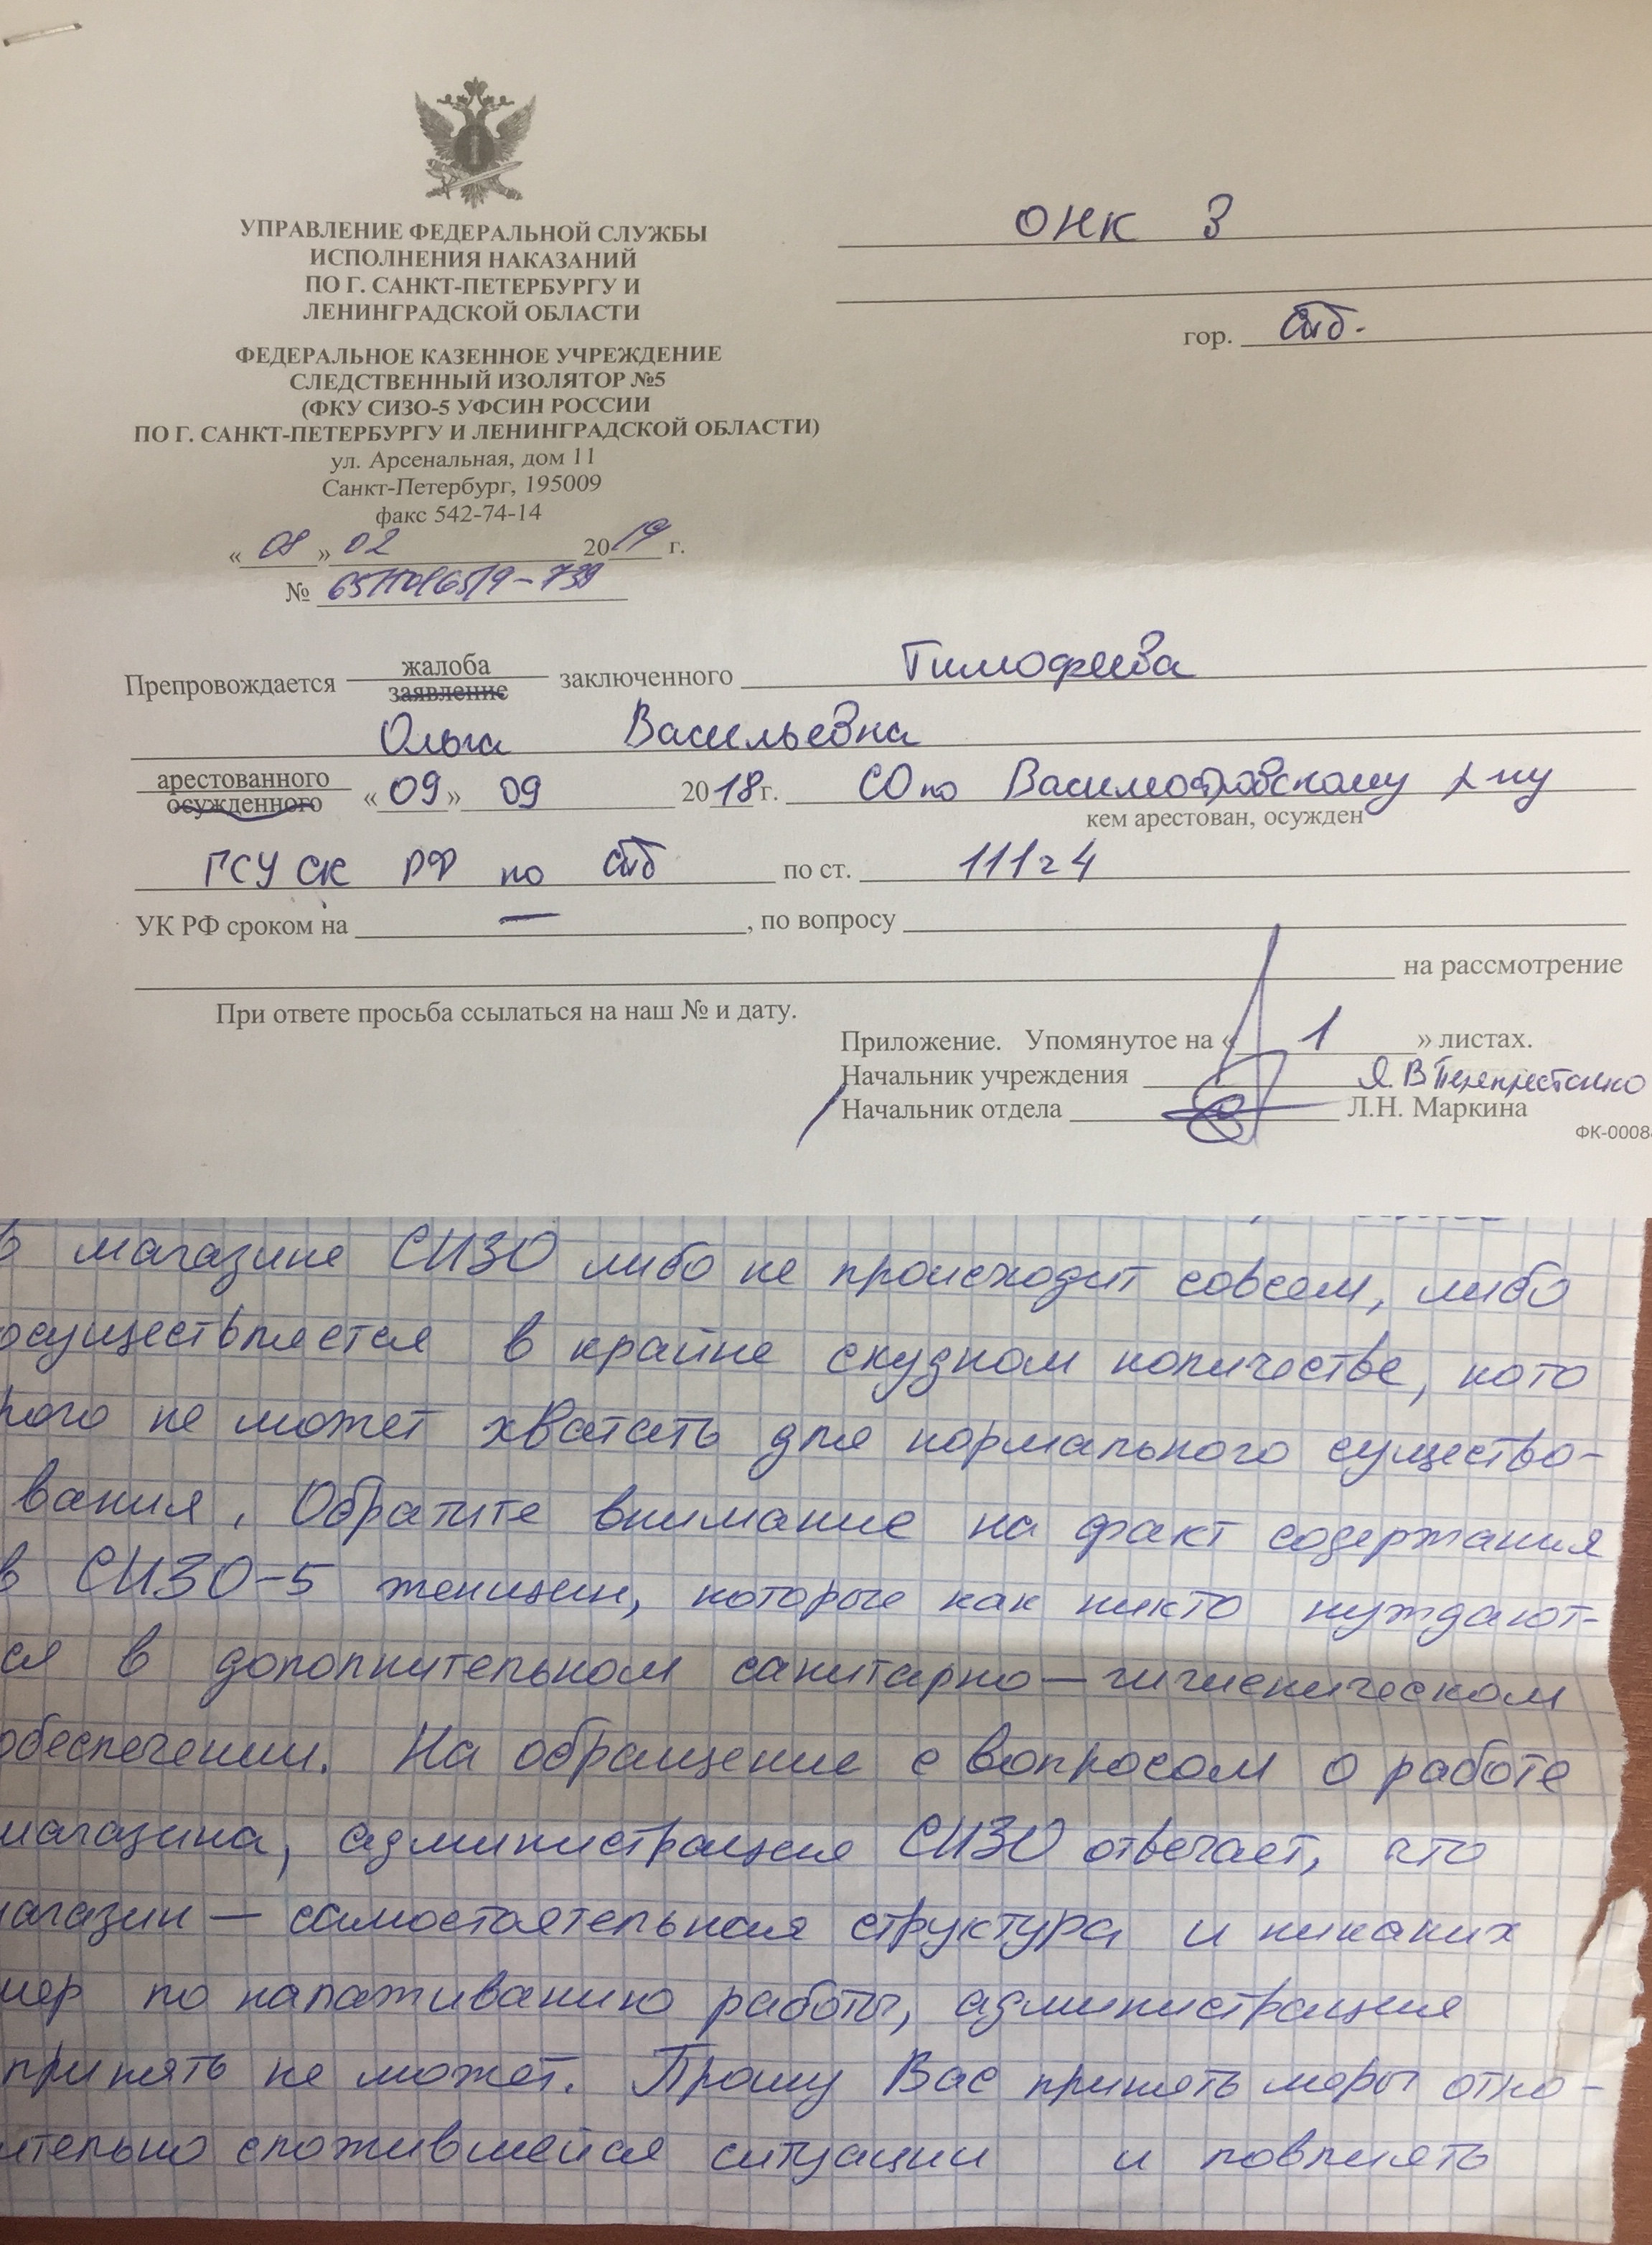 УПРАВЛЕНИЕ ФЕДЕРАЛЬНОЙ СЛУЖБЫ
ИСПОЛНЕНИЯ НАКАЗАНИЙ
ПО Г. САНКТ-ПЕТЕРБУРГУ И
ЛЕНИНГРАДСКОЙ ОБЛАСТИ
ФЕДЕРАЛЬНОЕ КАЗЕННОЕ УЧРЕЖДЕНИЕ
СЛЕДСТВЕННЫЙ ИЗОЛЯТОР №5
(ФКУ СИЗО-5 УФСИН РОССИИ
ПО Г. САНКТ-ПЕТЕРБУРГУ И ЛЕНИНГРАДСКОЙ ОБЛАСТИ)
ул. Арсенальная, дом 11
Санкт-Петербург, 195009
факс 542-74-14
« 08 » 02 2019 г.
№
ОНК З
гор. Спб.
Препровождается жалоба заявление заключенного Тимофеева
Ольга Васильевна
арестованного осужденного « 09 » 09 2018 г. СО по Василеостровскому р-ну
кем арестован, осужден
ГСУ СК РФ по Спб по ст. 111 ч 4
УК РФ сроком на — , по вопросу
на рассмотрение
При ответе просьба ссылаться на наш № и дату.
Приложение. Упомянутое на « 1 » листах.
Начальник учреждения Я.В Перепрестенко
Начальник отдела Л.Н. Маркина
ФК-0008
в магазине СИЗО либо не происходит совсем, либо
осуществляется в крайне скудном количестве, кото
рого не может хватать для нормального существо-
вания. Обратите внимание на факт содержания
в СИЗО-5 женщин, которые как никто нуждают-
ся в дополнительном санитарно-гигиеническом
обеспечении. На обращение с вопросом о работе
магазина, администрация СИЗО отвечает, что
агазин — самостоятельная структура и никаких
мер по налаживанию работы, администрация
принять не может. Прошу Вас принять меры отно-
ительно сложившейся ситуации и повлиять